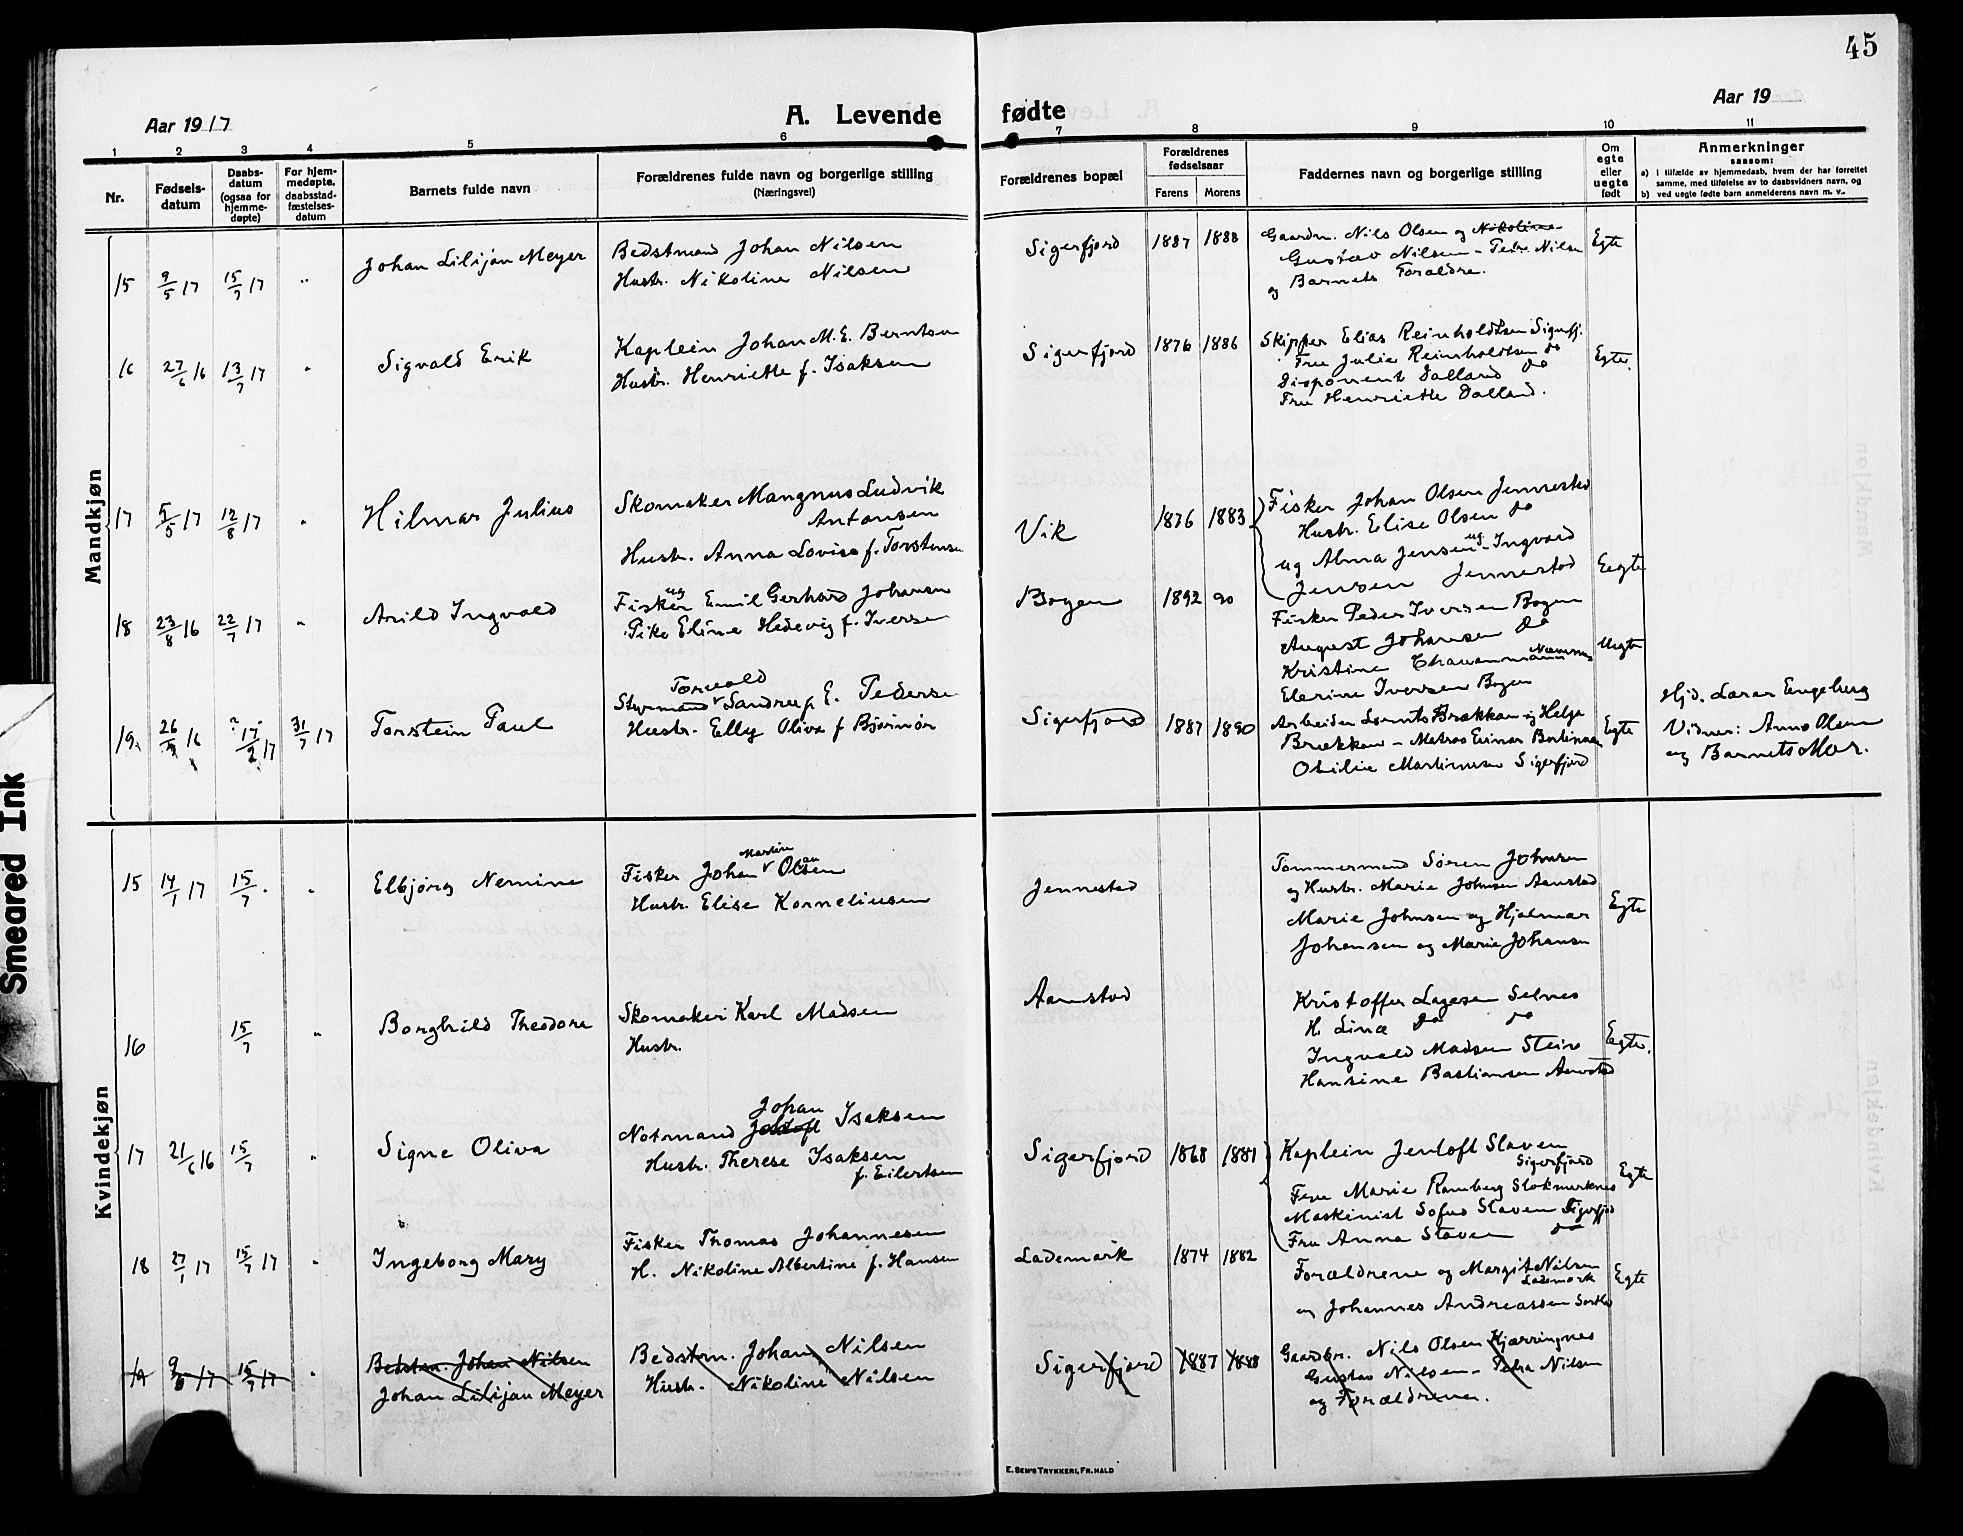 45
Aar 1917
A. Levende
fødte
Aar 19
1 2 3 4 5 6 7 8 9 10 11
Nr.
Fødsels-
datum
Daabs-
datum
(ogsaa for
hjemme-
døpte)
For hjem-
medøpte,
daabsstad-
fæstelses-
datum
Barnets fulde navn
Forældrenes fulde navn og borgerlige stilling
(Næringsvei)
Forældrenes bopæl
Forældrenes
fødselsaar
Farens Morens
Faddernes navn og borgerlige stilling
Om
egte
eller
uegte
født
Anmerkninger
saasom:
a) i tilfælde av hjemmedaab, hvem der har forrettet
samme, med tilføielse av to daabsvidners navn, og
b) ved uegte fødte barn anmelderens navn m. v..
Mandkjøn
15 9/5 17 15/7 17 " Johan Lilijan Meyer
Bedstmand Johan Nilsen
Hustr. Nikoline Nilsen
Sigerfjord 1887 1888
Gaardm. Nils Olsen og Nikoline
Gustav Nilsen - Petra Nilsen
og Barnets Forældre.
Egte
16 27/6 16 13/7 17 " Sigvald Erik
Kaptein Johan M. E. Berntsen
Hustr. Henriette f. Isaksen
Sigerfjord 1876 1886
Skipper Elias Reinholdtsen Sigerfj.
Fru Julie Reinholdtsen do
Disponent Dalland do
Fru Henriette Dalland.
Egte.
17 5/5 17 12/8 17 " Hilmar Julius
Skomaker Mangnus Ludvik
Antonsen
Hustr. Anna Lovise f. Torstensen
Vik 1876 1883
Fisker Johan Olsen Jennestad
Hustr. Elise Olsen do
ug Alma Jensen ug - Ingvald
Jensen Jennestad
Eegte
18 23/8 16 22/7 17 " Arild Ingvald
Fisker ug Emil Gerhard Johansen
Pike Eline Hedevig f. Iversen
Bogen 1892 90
Fisker Peder Iversen Bogen
August Johansen do
Kristine
Elerine Iversen Bogen
Uegte
19 26/9 16 17/2 17 31/7 17 Torstein Paul
Torvald
Styrmand Sandrup E. Pedersen
Hustr. Elly Oliva f Bjørnør
Sigerfjord 1887 1890
Arbeider Lornts Brækkan og Helga
Brækkan - Matros Einar Bertinsen
Otilie Martinusen Sigerfjord
Egte
Hjd. Laras Engeberg
Vidner: Anna Olsen
og Barnets Mor.
Kvindekjøn
15 14/1 17 15/7 . " Elbjørg Nemine
Martin
Fisker Johan Olsen
Hustr. Elise Korneliusen
Jennestad
Tømmermand Søren Johnsen
og Hustr. Marie Johnsen Aanstad
Marie Johnsen og Hjalmar
Johansen og Marie Johansen
Egte
16 15/7 " Borghild Theodora
Skomaker Karl Madsen
Hustr.
Aanstad
Kristoffer Lagesen Selnes
H. Lina do do
Ingvald Madsen Steiro
Hansine Bastiansen Aanstad
Eegte.
17 21/6 16 15/7 " Signe Oliva
Johan
Notmand Jentoft Isaksen
Hustr. Therese Isaksen
f. Eilertsen
Sigerfjord 1868 1881
Kaptein Jentoft Slaven
Sigerfjord
Fru Marie Ramberg Stokmarknes
Maskinist Sofus Slaven Sigerfjord
Fru Anna Slaven do
Egte
18 27/1 17 15/7 17 " Ingeborg Mary
Fisker Thomas Johannesen
H. Nikoline Albertine f. Hansen
Lademark 1874 1882
Forældrene og Margit Nilsen
Lademark
og Johannes Andreassen Sortland
Egte
19 9/5 17 15/7 17 " Bedstm. Johan Nilsen
Johan Lilijan Meyer
Bedstm. Johan Nilsen
Hustr. Nikoline Nilsen
Sigerfjord 1887 1888
Gaardbr. Nils Olsen Kjærringnes
Gustav Nilsen - Petra Nilsen
og Forældrene.
E. SEM'S TRYKKERI, FR.HALD
Smeared Ink